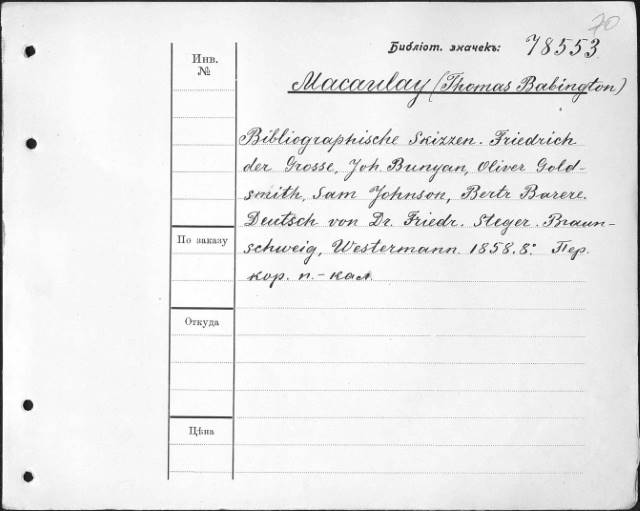 70
Библіот. значекъ: 78553
Инв.
№
Macaulay (Thomas Babington)
Bibliographische Skizzen. Friedrich
der Grosse, Joh. Bunyan, Oliver Gold-
smith, Sam Johnson, Bertr Barere.
Deutsch von Dr. Friedr. Steger. Braun-
По заказу
schweig, Westermann 1858. 8º. Пер.
кор. п. - кал.
Откуда
Цѣна